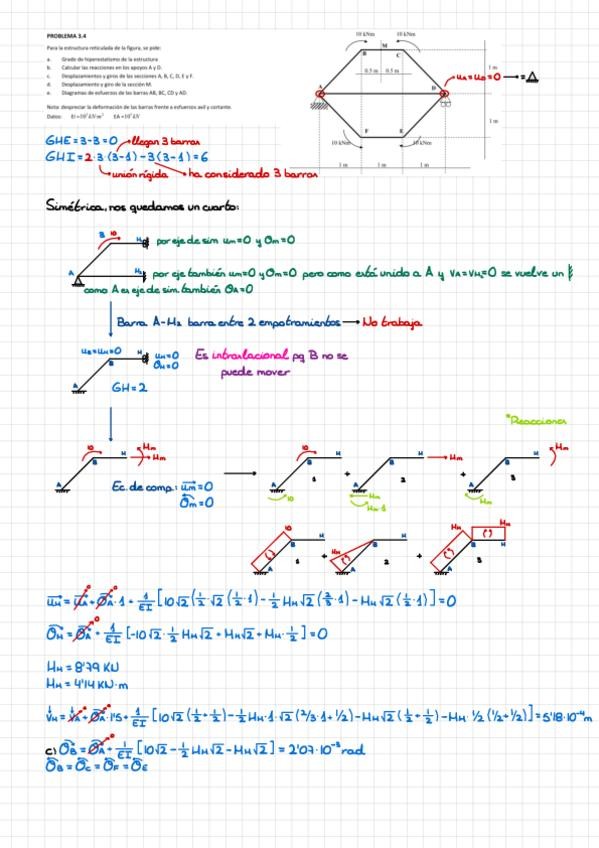 PROBLEMA 3.4
Para la estructura reticulada de la figura, se pide:
a. Grado de hiperestatismo de la estructura
b. Calcular las reacciones en los apoyos A y D.
c. Desplazamientos y giros de las secciones A, B, C, D, E y F.
d. Desplazamiento y giro de la sección M.
e. Diagramas de esfuerzos de las barras AB, BC, CD y AD.
Nota: despreciar la deformación de las barras frente a esfuerzos axil y cortante.
10 kNm 10 kNm
M
B C
0.5 m 0.5 m
1 m
A D
uA=uD=0 → = △
1 m
F E
10 kNm 10 kNm
1 m 1 m 1 m
GHE = 3-3 = 0 llegan 3 barras
GHI = 2·3·(3-1) - 3(3-1) = 6
unión rígida ha considerado 3 barras
Simétrica, nos quedamos un cuarto:
B 10
por eje de sim um=0 y θm=0
A
por eje también um=0 y θm=0 pero como está unido a A y VA=VM2=0 se vuelve un
como A es eje de sim. también θA=0
Barra A-M2 barra entre 2 empotramientos → No trabaja
uB=uM=0
uM=0
θM=0
Es intraslacional pq B no se
puede mover
GH=2
*Reacciones
10 B M Mm Hm
A
Ec. de comp.: um=0
θm=0
10 B 1 + Hm 2 + Mm 3
10 Hm Hm·1 Mm
10 B M 1 + Hm 2 + Mm Mm 3
uM = uA + θA·1 + 1/EI [10√2(1/2·√2(1/2·1) - 1/2 HM√2(2/3·1) - MM√2(1/2·1)] = 0
θM = θA + 1/EI [-10√2 · 1/2 HM√2 + MM√2 + MM·1/2] = 0
HM = 8'79 KN
MM = 4'14 KN·m
VM = VA + θA·1'5 + 1/EI [10√2(1/2+1/2) - 1/2 HM·1·√2(2/3·1+1/2) - MM√2(1/2+1/2) - MM·1/2(1/2+1/2)] = 5'18·10⁻⁴m
c) θB = θA + 1/EI [10√2 - 1/2 HM√2 - MM√2] = 2'07·10⁻³ rad
θB = θC = θF = θE